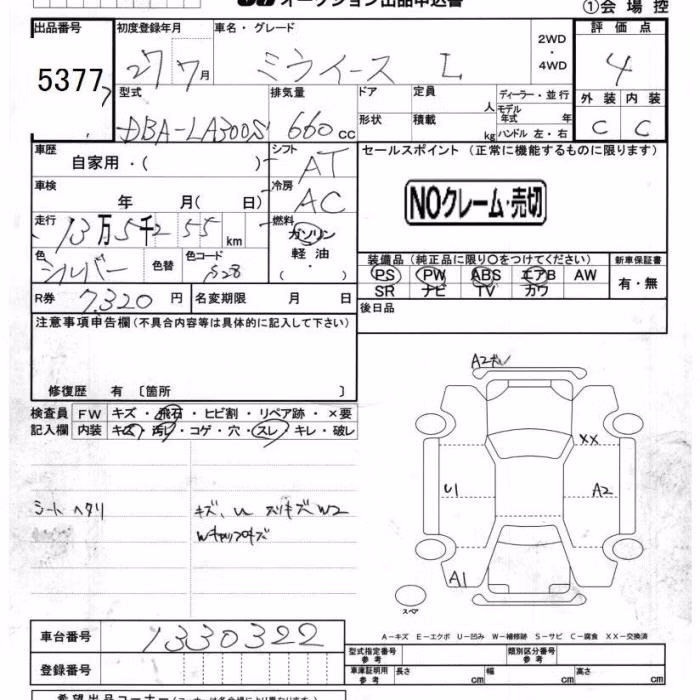 オークション出品申込書
①会場控
出品番号 初度登録年月 車名・グレード 評価点
5377
27 7月 ミライース L 2WD・4WD 4
型式 排気量 ドア 定員 人 ディーラー・並行 外装 内装
DBA-LA300S 660cc 形状 積載 kg モデル年式 年 ハンドル 左・右 C C
車歴 自家用・( ) シフト AT セールスポイント (正常に機能するものに限ります)
車検 年 月( 日) 冷房 AC
NOクレーム・売切
走行 13万5千255km 燃料 ガソリン・軽油・( )
色 シルバー 色替 色コード S28
装備品(純正品に限り○をつけてください) 新車保証書
PS PW ABS エアB AW 有・無
SR ナビ TV カワ
R券 7,320円 名変期限 月 日 後日品
注意事項申告欄(不具合内容等は具体的に記入して下さい)
修復歴 有 〔箇所 〕
検査員記入欄 FW キズ・飛石・ヒビ割・リペア跡・×要
内装 キズ・汚レ・コゲ・穴・スレ・キレ・破レ
シート ヘタリ
キズ、U スリキズ W2
Wキャップキズ
A2ボレ
XX
U1
A2
A1
スペア
A-キズ E-エクボ U-凹み W-補修跡 S-サビ C-腐食 XX-交換済
車台番号 1330322
型式指定番号 参考 類別区分番号 参考
登録番号
車庫証明用 参考 長さ cm 幅 cm 高さ cm
希望出品コーナー